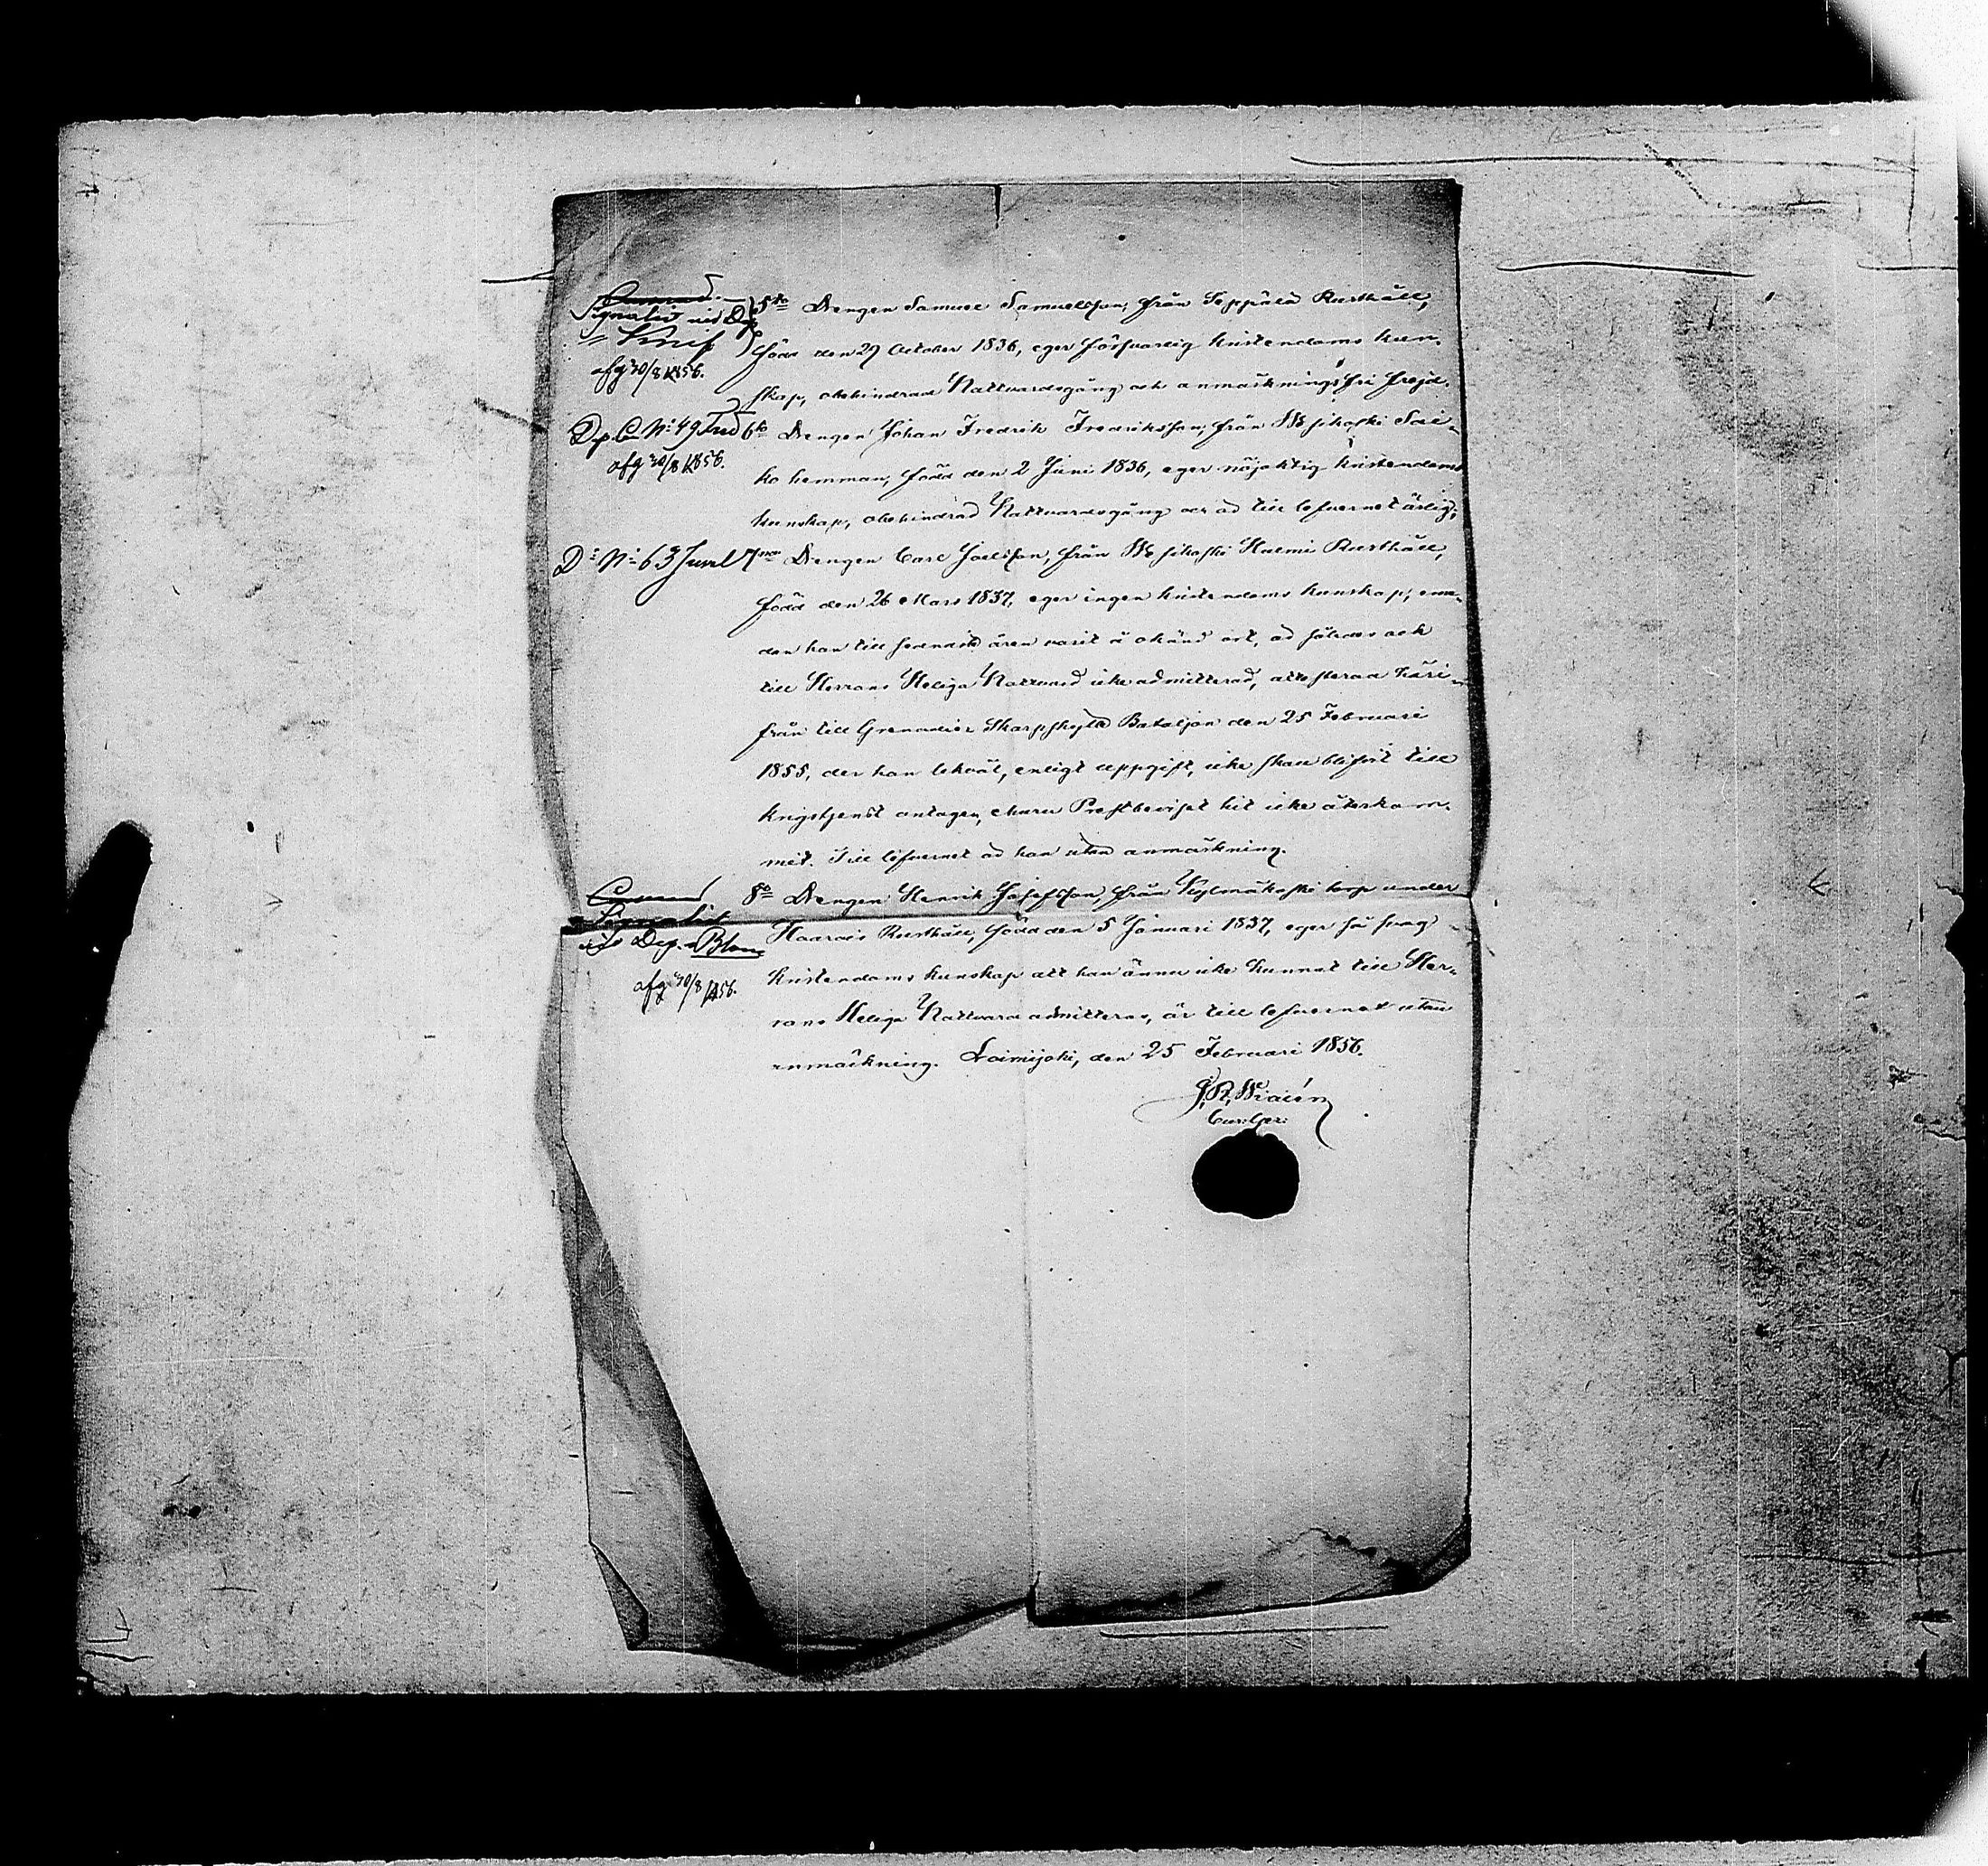 Signalist vid Dep
Knif
afg 30/8 1856.
5to Drengen Samuel Samuelsson, från Seppälä Rusthåll,
född den 29 October 1836, eger försvarlig kristendoms kun-
skap, obehindrad Nattvardsgång och anmärkningsfri frejd.
Dp C N:o 49
afg 30/8 1856.
6to Drengen Johan Fredrik Fredriksson, från Wesikoski Sai-
ko hemman, född den 2 Juni 1836, eger nöjaktig kristendoms
kunskap, obehindrad Nattvardsgång och är till lefvernet ärlig;
D:o N:o 63 Juvel
7mo Drengen Carl Joelsson, från Wesikoski Nuemi Rusthåll,
född den 26 Mars 1837, eger ingen kristendoms kunskap, eme-
dan han till sednaste åren varit å okänd ort, är således ock
till Herrans Heliga Nattvard icke admitterad, attesterad häri-
från till Grenadier Skarpskytte Bataljon den 25 Februari
1855, der han likväl, enligt uppgift, icke skall blifvit till
krigstjenst antagen, ehuru Prestbeviset hit icke återkom-
mit. Till lefvernet är han utan anmärkning.
Signalist
vid Dep. Blom
afg 30/8 1856.
8o Drengen Henrik Josefsson, från Kylmäkoski torp under
Haarois Rusthåll, född den 5 Januari 1837, eger så svag
kristendoms kunskap att han ännu icke kunnat till Her-
rans Heliga Nattvard admitteras, är till lefvernet utan
anmärkning. Loimijoki, den 25 Februari 1856.